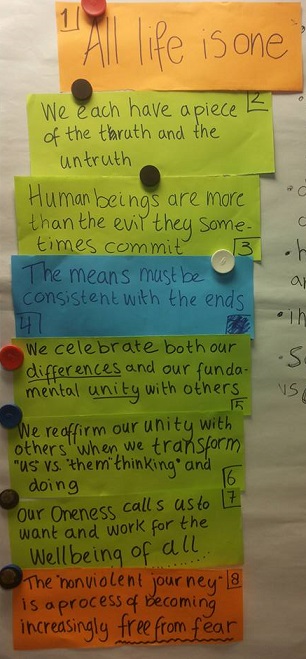 1
All life is one
2
We each have a piece
of the thruth and the
untruth
Human beings are more
than the evil they some-
times commit
3
The means must be
consistent with the ends
4
We celebrate both our
differences and our funda-
mental unity with others
5
We reaffirm our unity with
others when we transform
"us" vs. "them" thinking" and
doing
6
7
Our Oneness calls us to
want and work for the
Wellbeing of all......
The "nonviolent journey"
8
is a process of becoming
increasingly free from fear